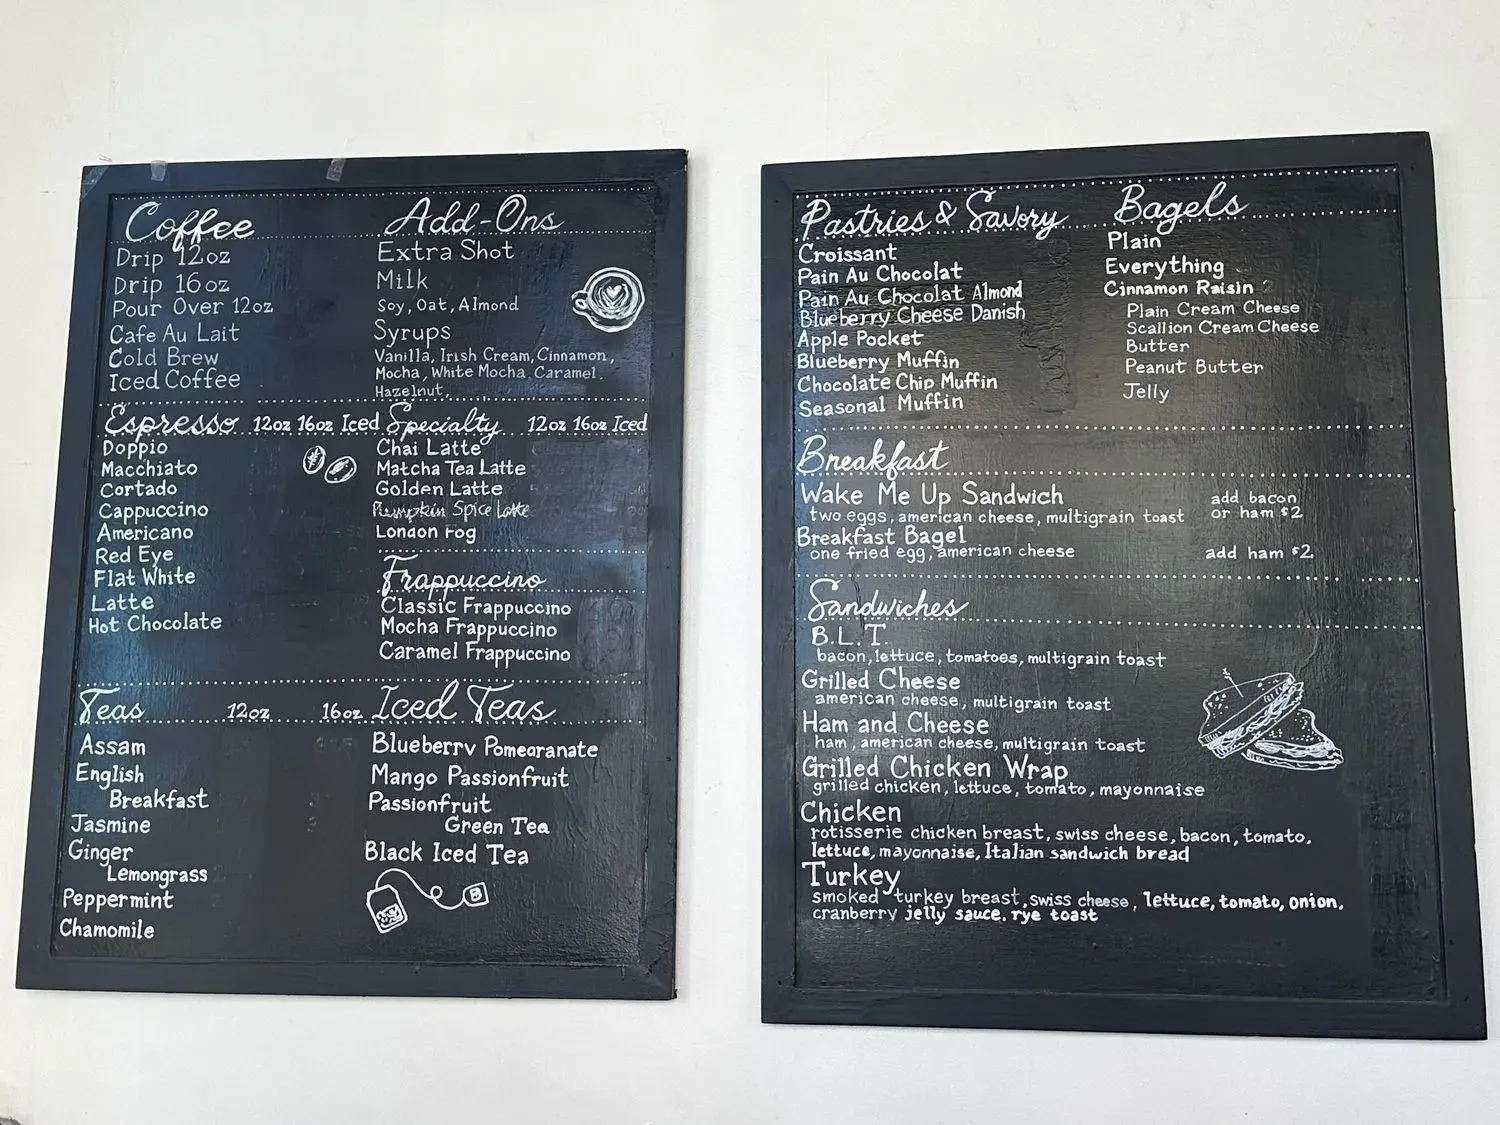 Coffee
Drip 12oz
Drip 16oz
Pour Over 12oz
Cafe Au Lait
Cold Brew
Iced Coffee
Add-Ons
Extra Shot
Milk
Soy, Oat, Almond
Syrups
Vanilla, Irish Cream, Cinnamon,
Mocha, White Mocha, Caramel,
Hazelnut,
Espresso 12oz 16oz Iced
Doppio
Macchiato
Cortado
Cappuccino
Americano
Red Eye
Flat White
Latte
Hot Chocolate
Specialty 12oz 16oz Iced
Chai Latte
Matcha Tea Latte
Golden Latte
Pumpkin Spice Latte
London Fog
Frappuccino
Classic Frappuccino
Mocha Frappuccino
Caramel Frappuccino
Teas 12oz 16oz
Assam
English
Breakfast
Jasmine
Ginger
Lemongrass
Peppermint
Chamomile
Iced Teas
Blueberry Pomegranate
Mango Passionfruit
Passionfruit
Green Tea
Black Iced Tea
Pastries & Savory
Croissant
Pain Au Chocolat
Pain Au Chocolat Almond
Blueberry Cheese Danish
Apple Pocket
Blueberry Muffin
Chocolate Chip Muffin
Seasonal Muffin
Bagels
Plain
Everything
Cinnamon Raisin
Plain Cream Cheese
Scallion Cream Cheese
Butter
Peanut Butter
Jelly
Breakfast
Wake Me Up Sandwich add bacon
two eggs, american cheese, multigrain toast or ham $2
Breakfast Bagel
one fried egg, american cheese add ham $2
Sandwiches
B.L.T.
bacon, lettuce, tomatoes, multigrain toast
Grilled Cheese
american cheese, multigrain toast
Ham and Cheese
ham, american cheese, multigrain toast
Grilled Chicken Wrap
grilled chicken, lettuce, tomato, mayonnaise
Chicken
rotisserie chicken breast, swiss cheese, bacon, tomato,
lettuce, mayonnaise, Italian sandwich bread
Turkey
smoked turkey breast, swiss cheese, lettuce, tomato, onion,
cranberry jelly sauce, rye toast